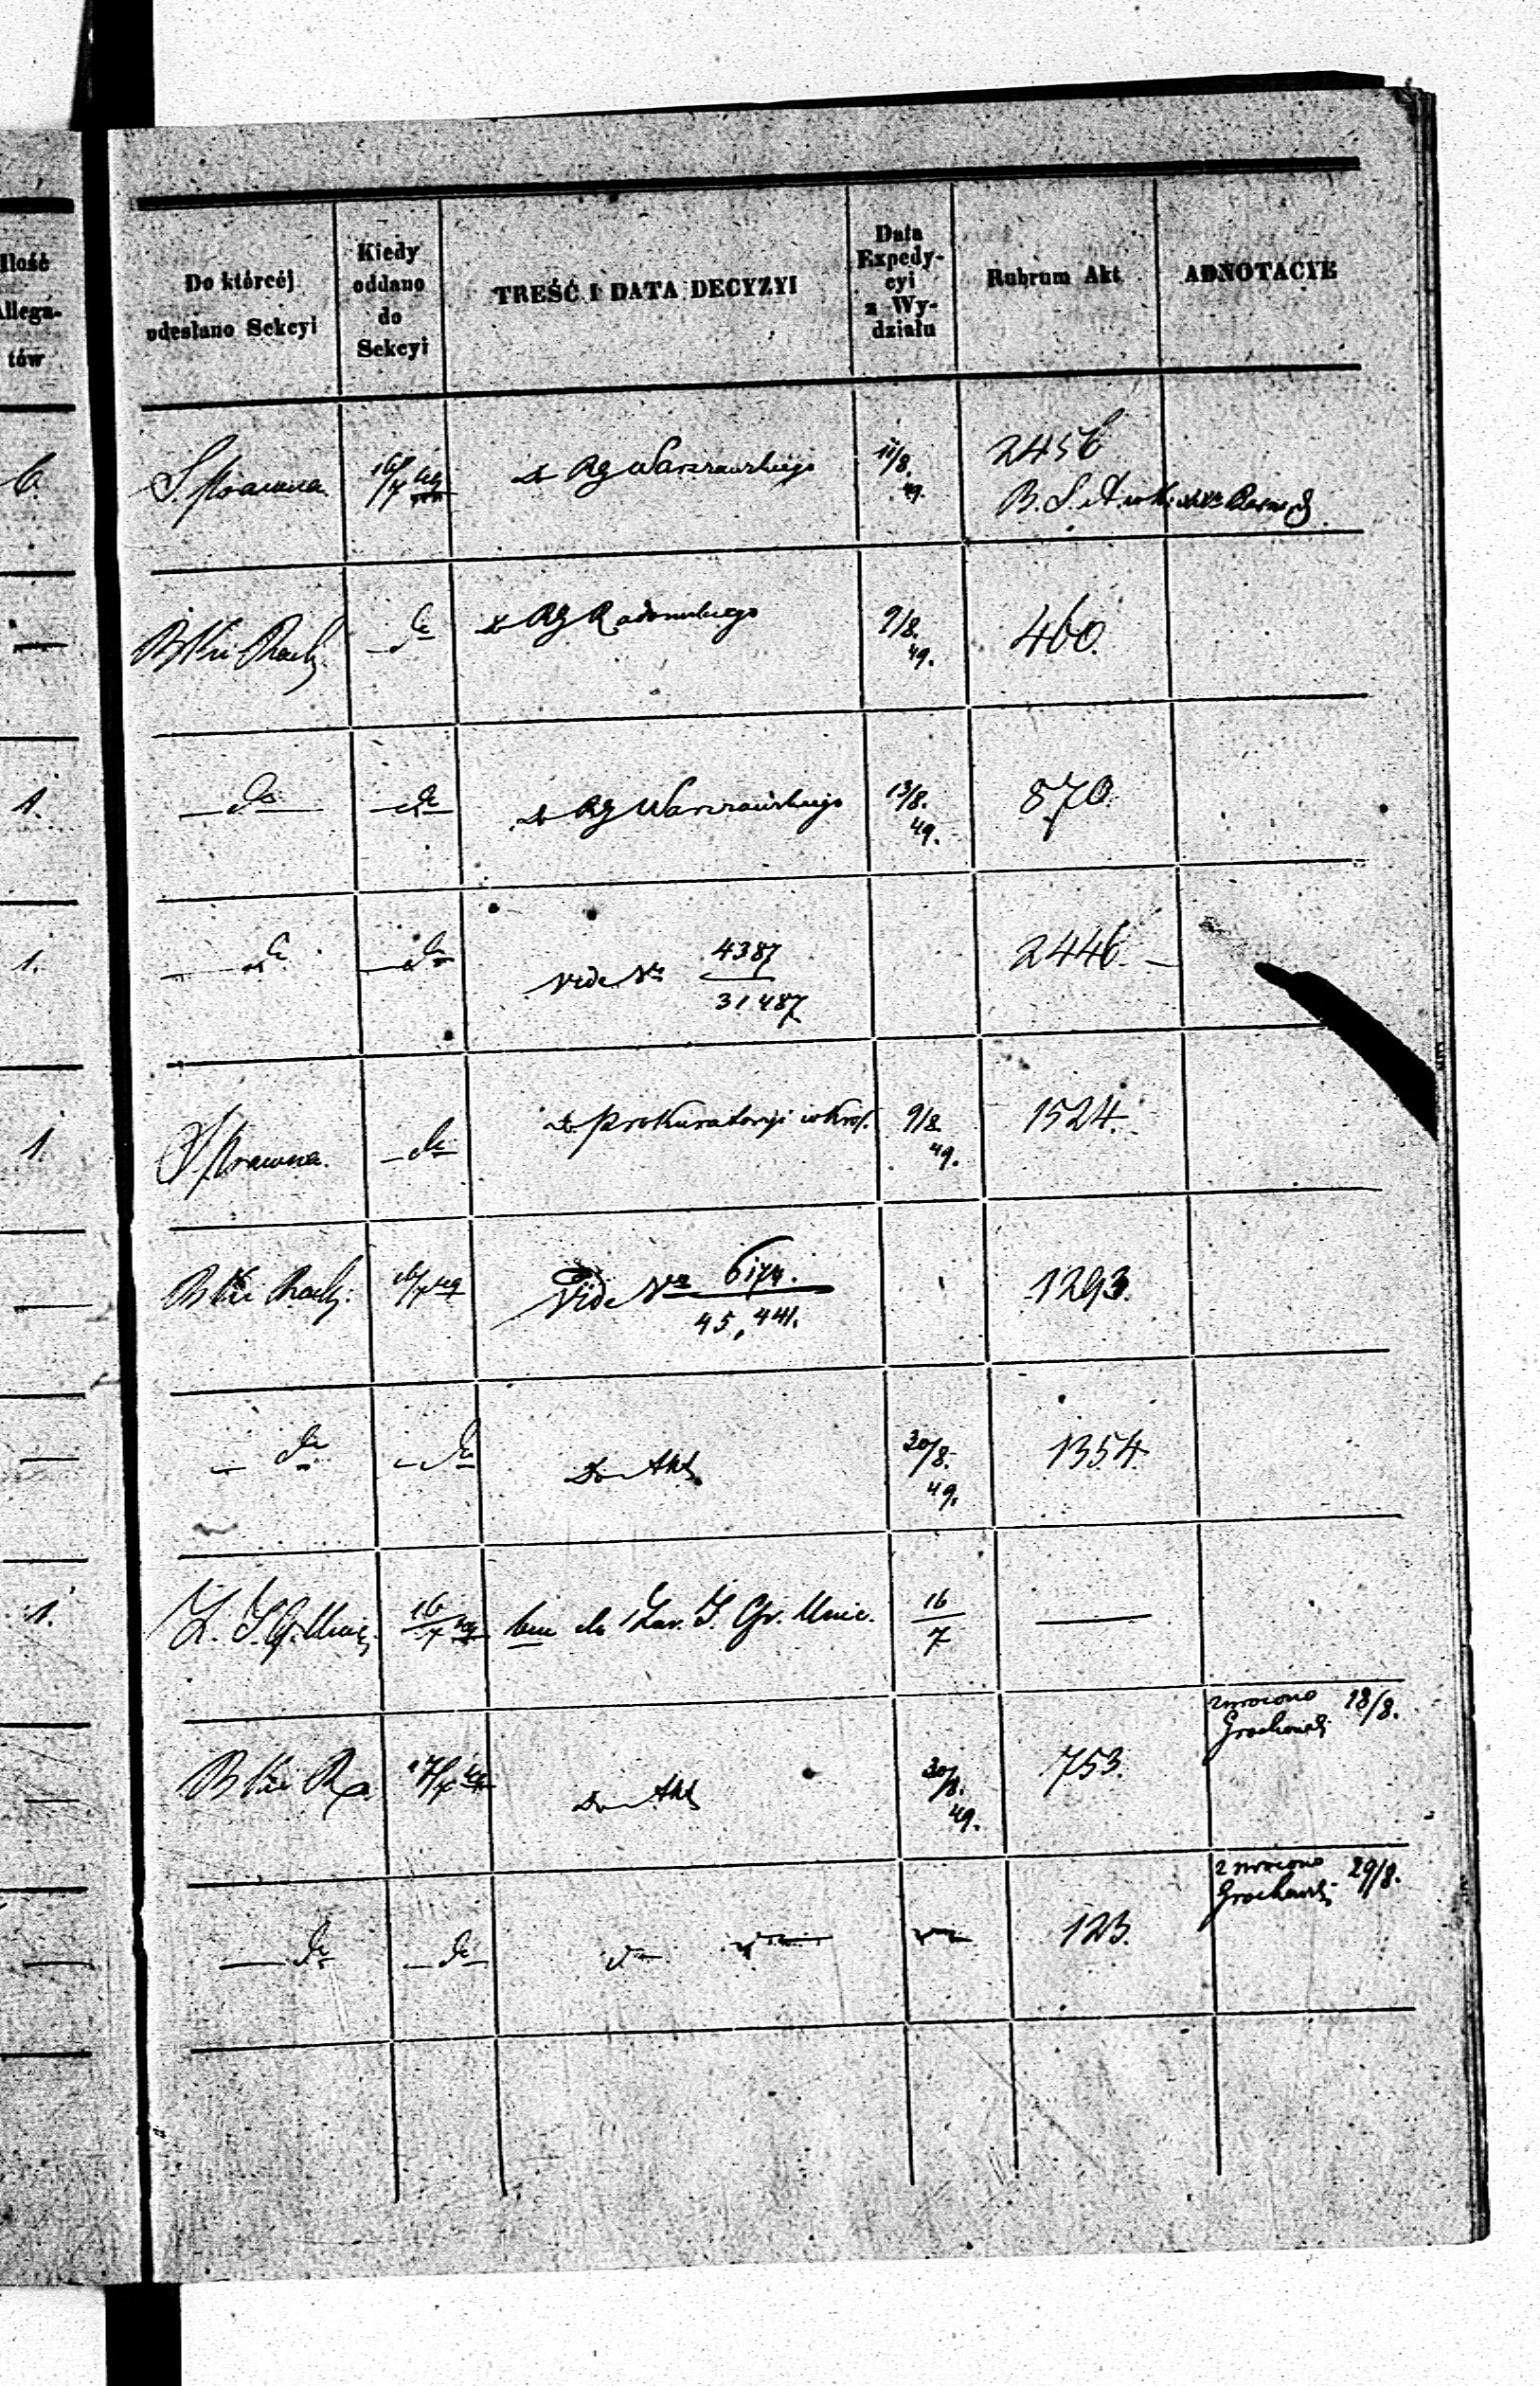 Ilość
Allega-
tów
Do którćej
odesłano Sekcyi
Kiedy
oddano
do
Sekcyi
TREŚĆ I DATA DECYZYI
Data
Expedy-
cyi
z Wy-
działu
Rubrum Akt
ADNOTACYE
6.
S. Prawna
16/7 49
Do RG Warszawskiego
11/8.
49.
2456
B. S.
—
do
Do RG Radomskiego
9/8.
49.
460.
1.
do
do
Do RG Warszawskiego
13/8.
49.
870.
1.
do
do
Vide Nro
4387
31487
2446.
1.
S. Prawna.
do
Do Prokuratoryi w Król.
9/8.
49.
1524.
—
16/7 49
Vide Nro
6174.
45,441.
1293.
—
do
do
Do Akt
30/8.
49.
1354.
1.
16/7 49
16
7
—
—
17/7 49
Do Akt
30/8.
49.
753.
zwrócono 28/8.
Grochowski
—
do
do
123.
zwrócono 29/8.
Grochowski